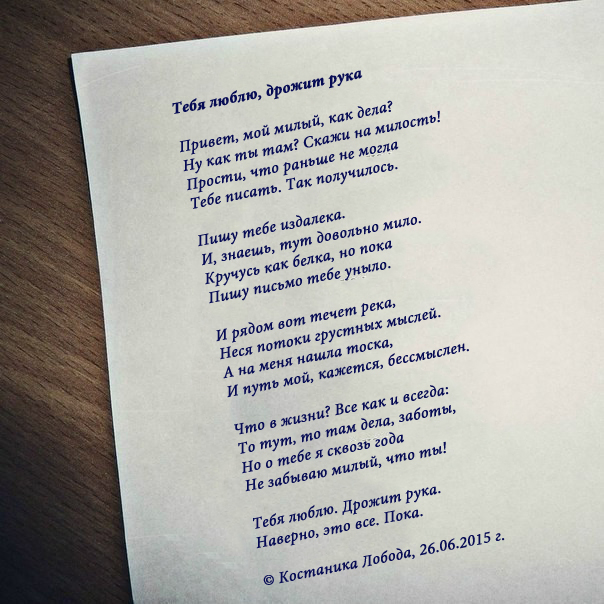 Тебя люблю, дрожит рука
Привет, мой милый, как дела?
Ну как ты там? Скажи на милость!
Прости, что раньше не могла
Тебе писать. Так получилось.
Пишу тебе издалека.
И, знаешь, тут довольно мило.
Кручусь как белка, но пока
Пишу письмо тебе уныло.
И рядом вот течет река,
Неся потоки грустных мыслей.
А на меня нашла тоска,
И путь мой, кажется, бессмыслен.
Что в жизни? Все как и всегда:
То тут, то там дела, заботы,
Но о тебе я сквозь года
Не забываю милый, что ты!
Тебя люблю. Дрожит рука.
Наверно, это все. Пока.
© Костаника Лобода, 26.06.2015 г.